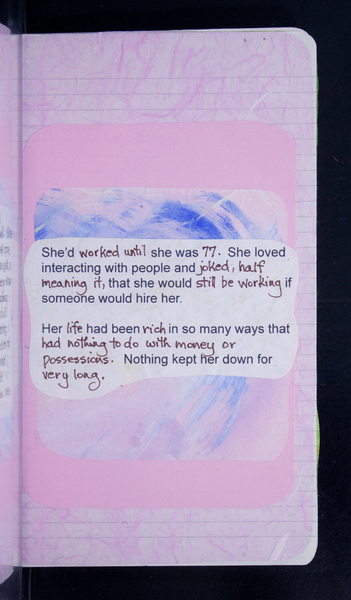 She'd worked until she was 77. She loved
interacting with people and joked, half
meaning it, that she would still be working if
someone would hire her.
Her life had been rich in so many ways that
had nothing to do with money or
possessions. Nothing kept her down for
very long.